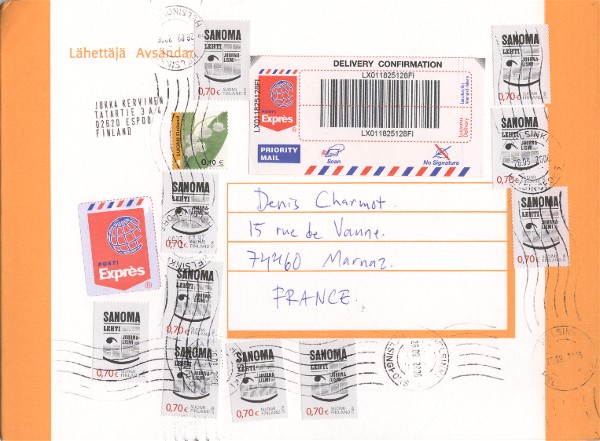 Lähettäjä Avsändar
JUKKA KERVINEN
TATARTIE 3 A 4
02620 ESPOO
FINLAND
DELIVERY CONFIRMATION
LX011825128FI
LX011825128FI
LX011825128FI
POSTI
Exprès
PRIORITY
MAIL
Scan
No Signature
Denis Charmot.
15 rue de Vanne.
74460 Marnaz.
FRANCE.
POSTI
Exprès
SANOMA
LEHTI
JOURNA-
LISMI
0,70€
SUOMI
FINLAND
SANOMA
LEHTI
0,70€
SUOMI FINLAND
0,10€
SANOMA
0,70€
SANOMA
LEHTI
0,70€
0,70€
SANOMA
LEHTI
0,70€
SANOMA
LEHTI
0,70€
SUOMI
FINLAND
SANOMA
0,70€
SUOMI
FINLAND
SANOMA
LEHTI
0,70€
SUOMI
FINLAND
SANOMA
LEHTI
0,70€
SUOMI
FINLAND
HELSINKI